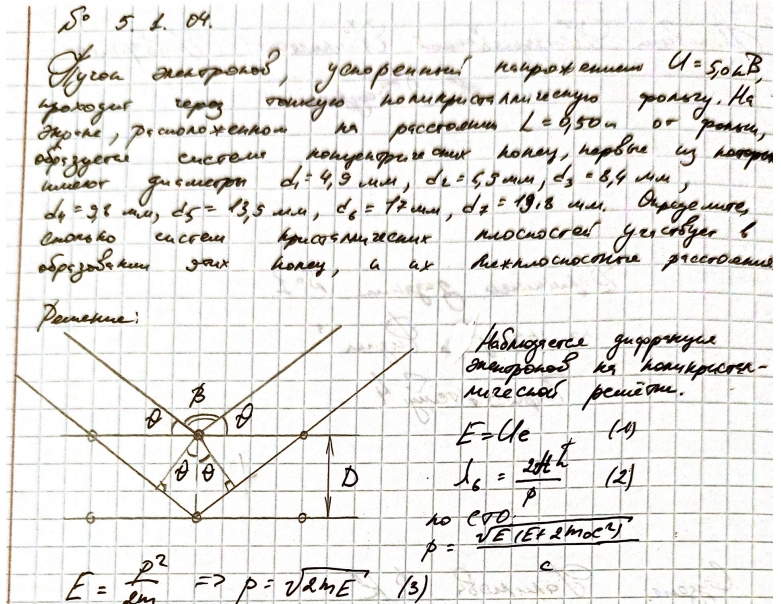 № 5.1.04.
Пучок электронов, ускоренный напряжением U = 5,0 кВ,
проходит через тонкую поликристаллическую фольгу. На
экране, расположенном на расстоянии L = 0,50 м от фольги,
образуется система концентрических колец, первые из которых
имеют диаметры d₁ = 4,9 мм, d₂ = 5,9 мм, d₃ = 8,4 мм,
d₄ = 9,8 мм, d₅ = 13,5 мм, d₆ = 17 мм, d₇ = 19,8 мм. Определите,
сколько систем кристаллических плоскостей участвует в
образовании этих колец, и их межплоскостные расстояния
Решение:
θ B θ
θ θ
D
Наблюдается дифракция
электронов на поликристал-
лической решётке.
E = Ue (1)
λБ = 2πħ/p (2)
по СТО:
p = √(E(E+2m₀c²))/c
E = p²/2m => p = √(2mE) (3)